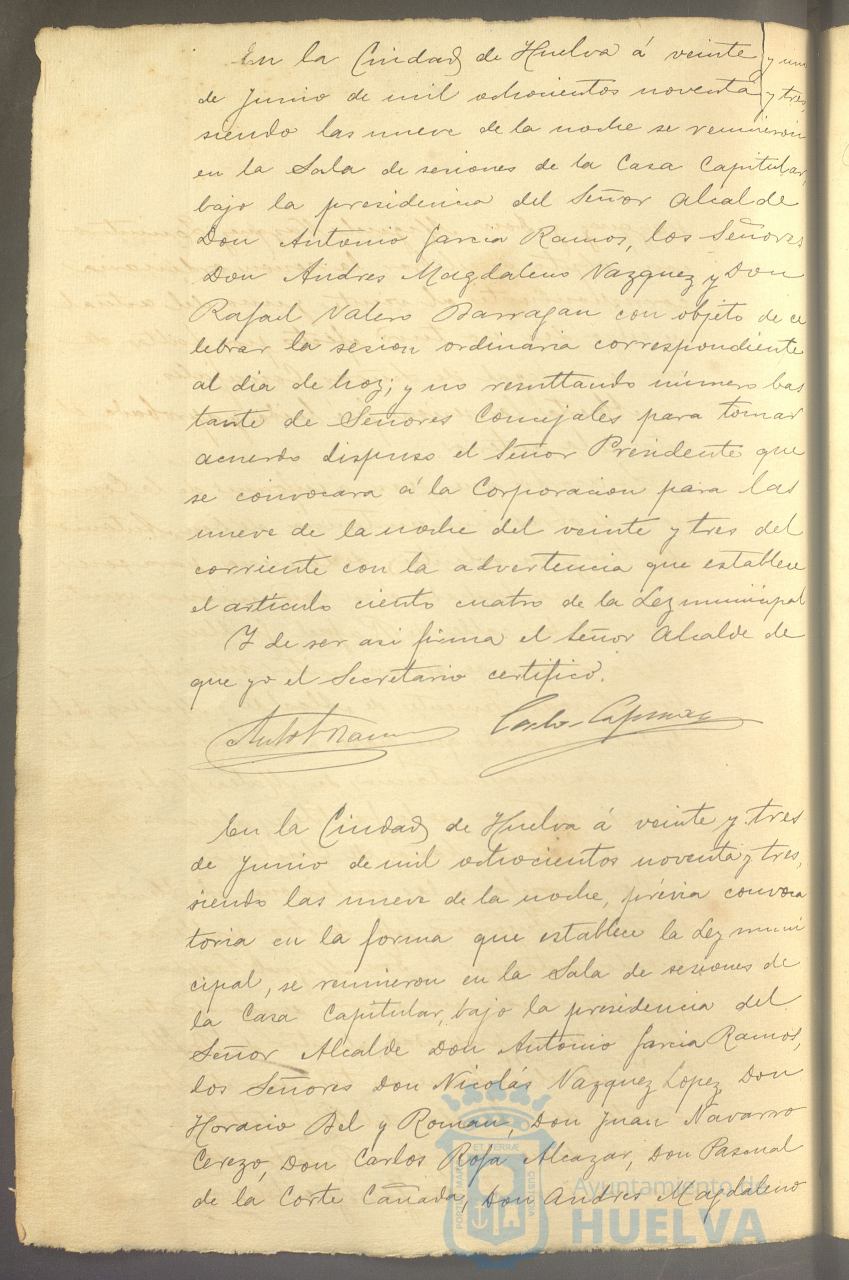 En la Ciudad de Huelva á veinte y un
de Junio de mil ochocientos noventa y tres,
siendo las nueve de la noche se reunieron
en la Sala de sesiones de la Casa Capitular,
bajo la presidencia del Señor Alcalde
Don Antonio Garcia Ramos, los Señores
Don Andres Magdaleno Vazquez y Don
Rafael Valero Barragan con objeto de ce
lebrar la sesion ordinaria correspondiente
al dia de hoy; y no resultando número bas
tante de Señores Concejales para tomar
acuerdo dispuso el Señor Presidente que
se convocara á la Corporacion para las
nueve de la noche del veinte y tres del
corriente con la advertencia que establece
el artículo ciento cuatro de la Ley municipal
Y de ser asi firma el Señor Alcalde de
que yo el Secretario certifico.
En la Ciudad de Huelva á veinte y tres
de Junio de mil ochocientos noventa y tres,
siendo las nueve de la noche, prévia convoca
toria en la forma que establece la Ley muni
cipal, se reunieron en la Sala de sesiones de
la Casa Capitular, bajo la presidencia del
Señor Alcalde Don Antonio Garcia Ramos,
los Señores Don Nicolás Vazquez Lopez, Don
Horacio Bel y Roman, Don Juan Navarro
Cerezo, Don Carlos Rofa Alcazar, Don Pascual
de la Corte Cañada, Don Andres Magdaleno
Ayuntamiento de
HUELVA